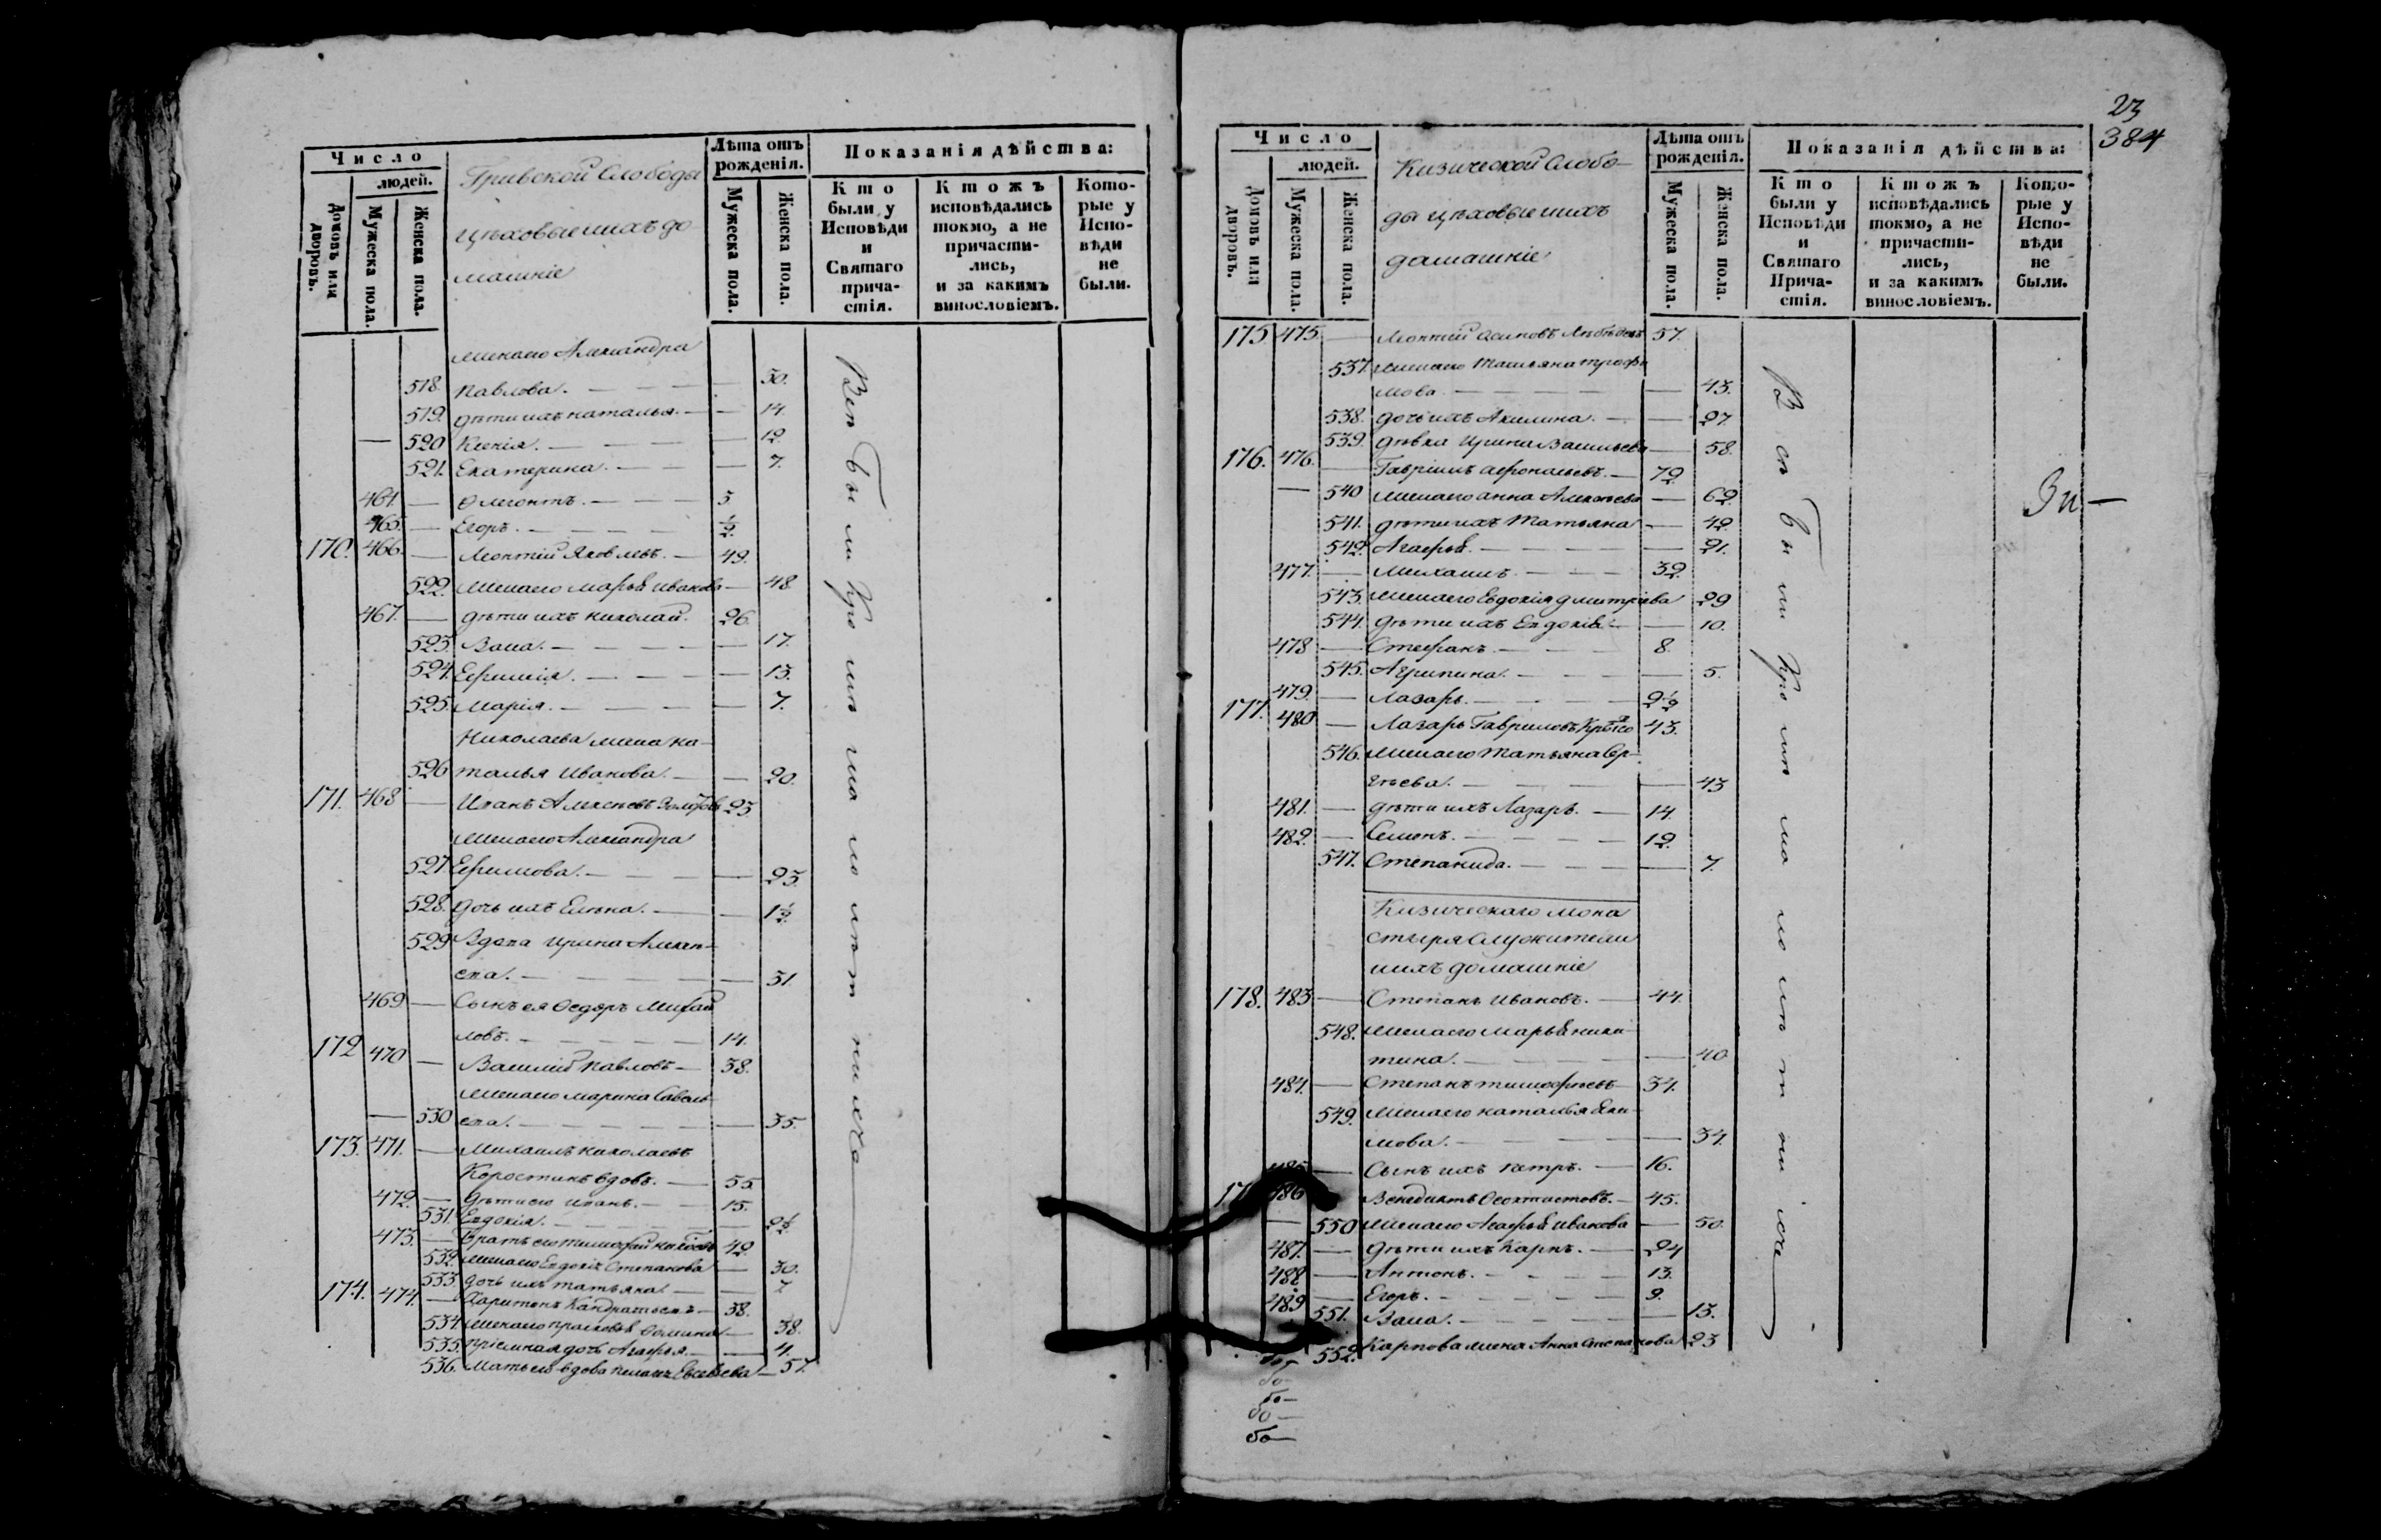 Число
людей.
Домовъ или дворовъ.
Мужеска пола.
Женска пола.
Гривской Слободы
цѣховые ихъ до
машніе
Лѣта отъ рожденія.
Мужеска пола.
Женска пола.
Показанія дѣйства:
Кто были у Исповѣди и Святаго причастія.
Ктожъ исповѣдались токмо, а не причастились, и за какимъ винословіемъ.
Которые у Исповѣди не были.
жена его Александра
518. Павлова. — 50.
519. дѣти ихъ Наталья. — 14.
— 520 Ксенія. — 12.
521. Екатерина. — 7.
464. — Флегонтъ. — 5
465. — Егоръ. — ½
170. 466. — Леонтій Яковлевъ. — 49.
522. жена его Марья Иванова — 48
467. — дѣти ихъ Николай. 26.
523. Васа. — 17.
524. Ефимія. — 13.
525. Марія. — 7.
Николаева жена На-
526 талья Иванова. — 20.
171. 468 — Иванъ Алексѣевъ 23
жена его Александра
527 Ефимова. — 23.
528. дочь ихъ Елена. — 1½
529 Вдова Ирина Алекѣ-
ева. — 31
469 — Сынъ ея Ѳедоръ Михай
ловъ. — 14.
172 470 — Василій Павловъ — 38.
жена его Марина Савель
— 530 ева. — 35.
173. 471. — Михаилъ Николаевъ
Коростинъ вдовъ. — 55
472. — дѣти его Иванъ. — 15.
531. Евдокія. — 2½
473. — Братъ его Тимофей 42.
532. жена его Евдокія Степанова — 30.
533. дочь ихъ Татьяна. — 7
174. 474. — Харитонъ Кандратьевъ — 38.
534 жена его Прасковья Фомина — 38.
535. пріемная дочь Агафья. — 4.
536. Мать его вдова Евсевьева — 57.
Всѣ были кромѣ малолѣтнихъ
23
384
Число
людей.
Домовъ или дворовъ.
Мужеска пола.
Женска пола.
Кизической Слобо-
ды цѣховые ихъ
домашніе
Лѣта отъ рожденія.
Мужеска пола.
Женска пола.
Показанія дѣйства:
Кто были у Исповѣди и Святаго Причастія.
Ктожъ исповѣдались токмо, а не причастились, и за какимъ винословіемъ.
Которые у Исповѣди не были.
175 475. — Леонтій Осиповъ 57.
537. жена его Татьяна Трофи
мова. — 43.
538. дочь ихъ Акилина. — 27.
539. дѣвка Ирина Васильева — 58.
176. 476. — Гаврилъ Афонасьевъ. — 72
— 540 жена его Анна Алексѣева — 62.
541. дѣти ихъ Татьяна — 42.
542. Агафья. — 21.
477. — Михаилъ. — 32.
543. жена его Евдокія Дмитріева 29
544. дѣти ихъ Евдокія — 10.
478 — Стефанъ. — 8.
545. Агрипина. — 5.
479. — Лазарь. — 2½
177. 480 — Лазарь Гавриловъ 43.
546. жена его Татьяна Сер-
гѣева. — 43
481. — дѣти ихъ Лазарь. — 14.
482. — Семенъ. — 12.
547. Степанида. — 7.
Кизическаго мона
стыря служители
ихъ домашніе
178. 483 — Степанъ Ивановъ. — 44.
548. жена его Марья Ники
тина. — 40
484. — Степанъ Тимофѣевъ 34.
549. жена его Наталья Еки-
мова. — 34.
— Сынъ ихъ Петръ. — 16.
Венедиктъ Ѳеоктистовъ. — 45.
— 550 жена его Агафья Иванова — 50
487. — дѣти ихъ Карпъ. — 24
488 — Антонъ. — 13.
489 — Егоръ. — 9.
551. Васа. — 13.
552. Карпова жена Анна Степанова 23
Всѣ были кромѣ малолѣтнихъ